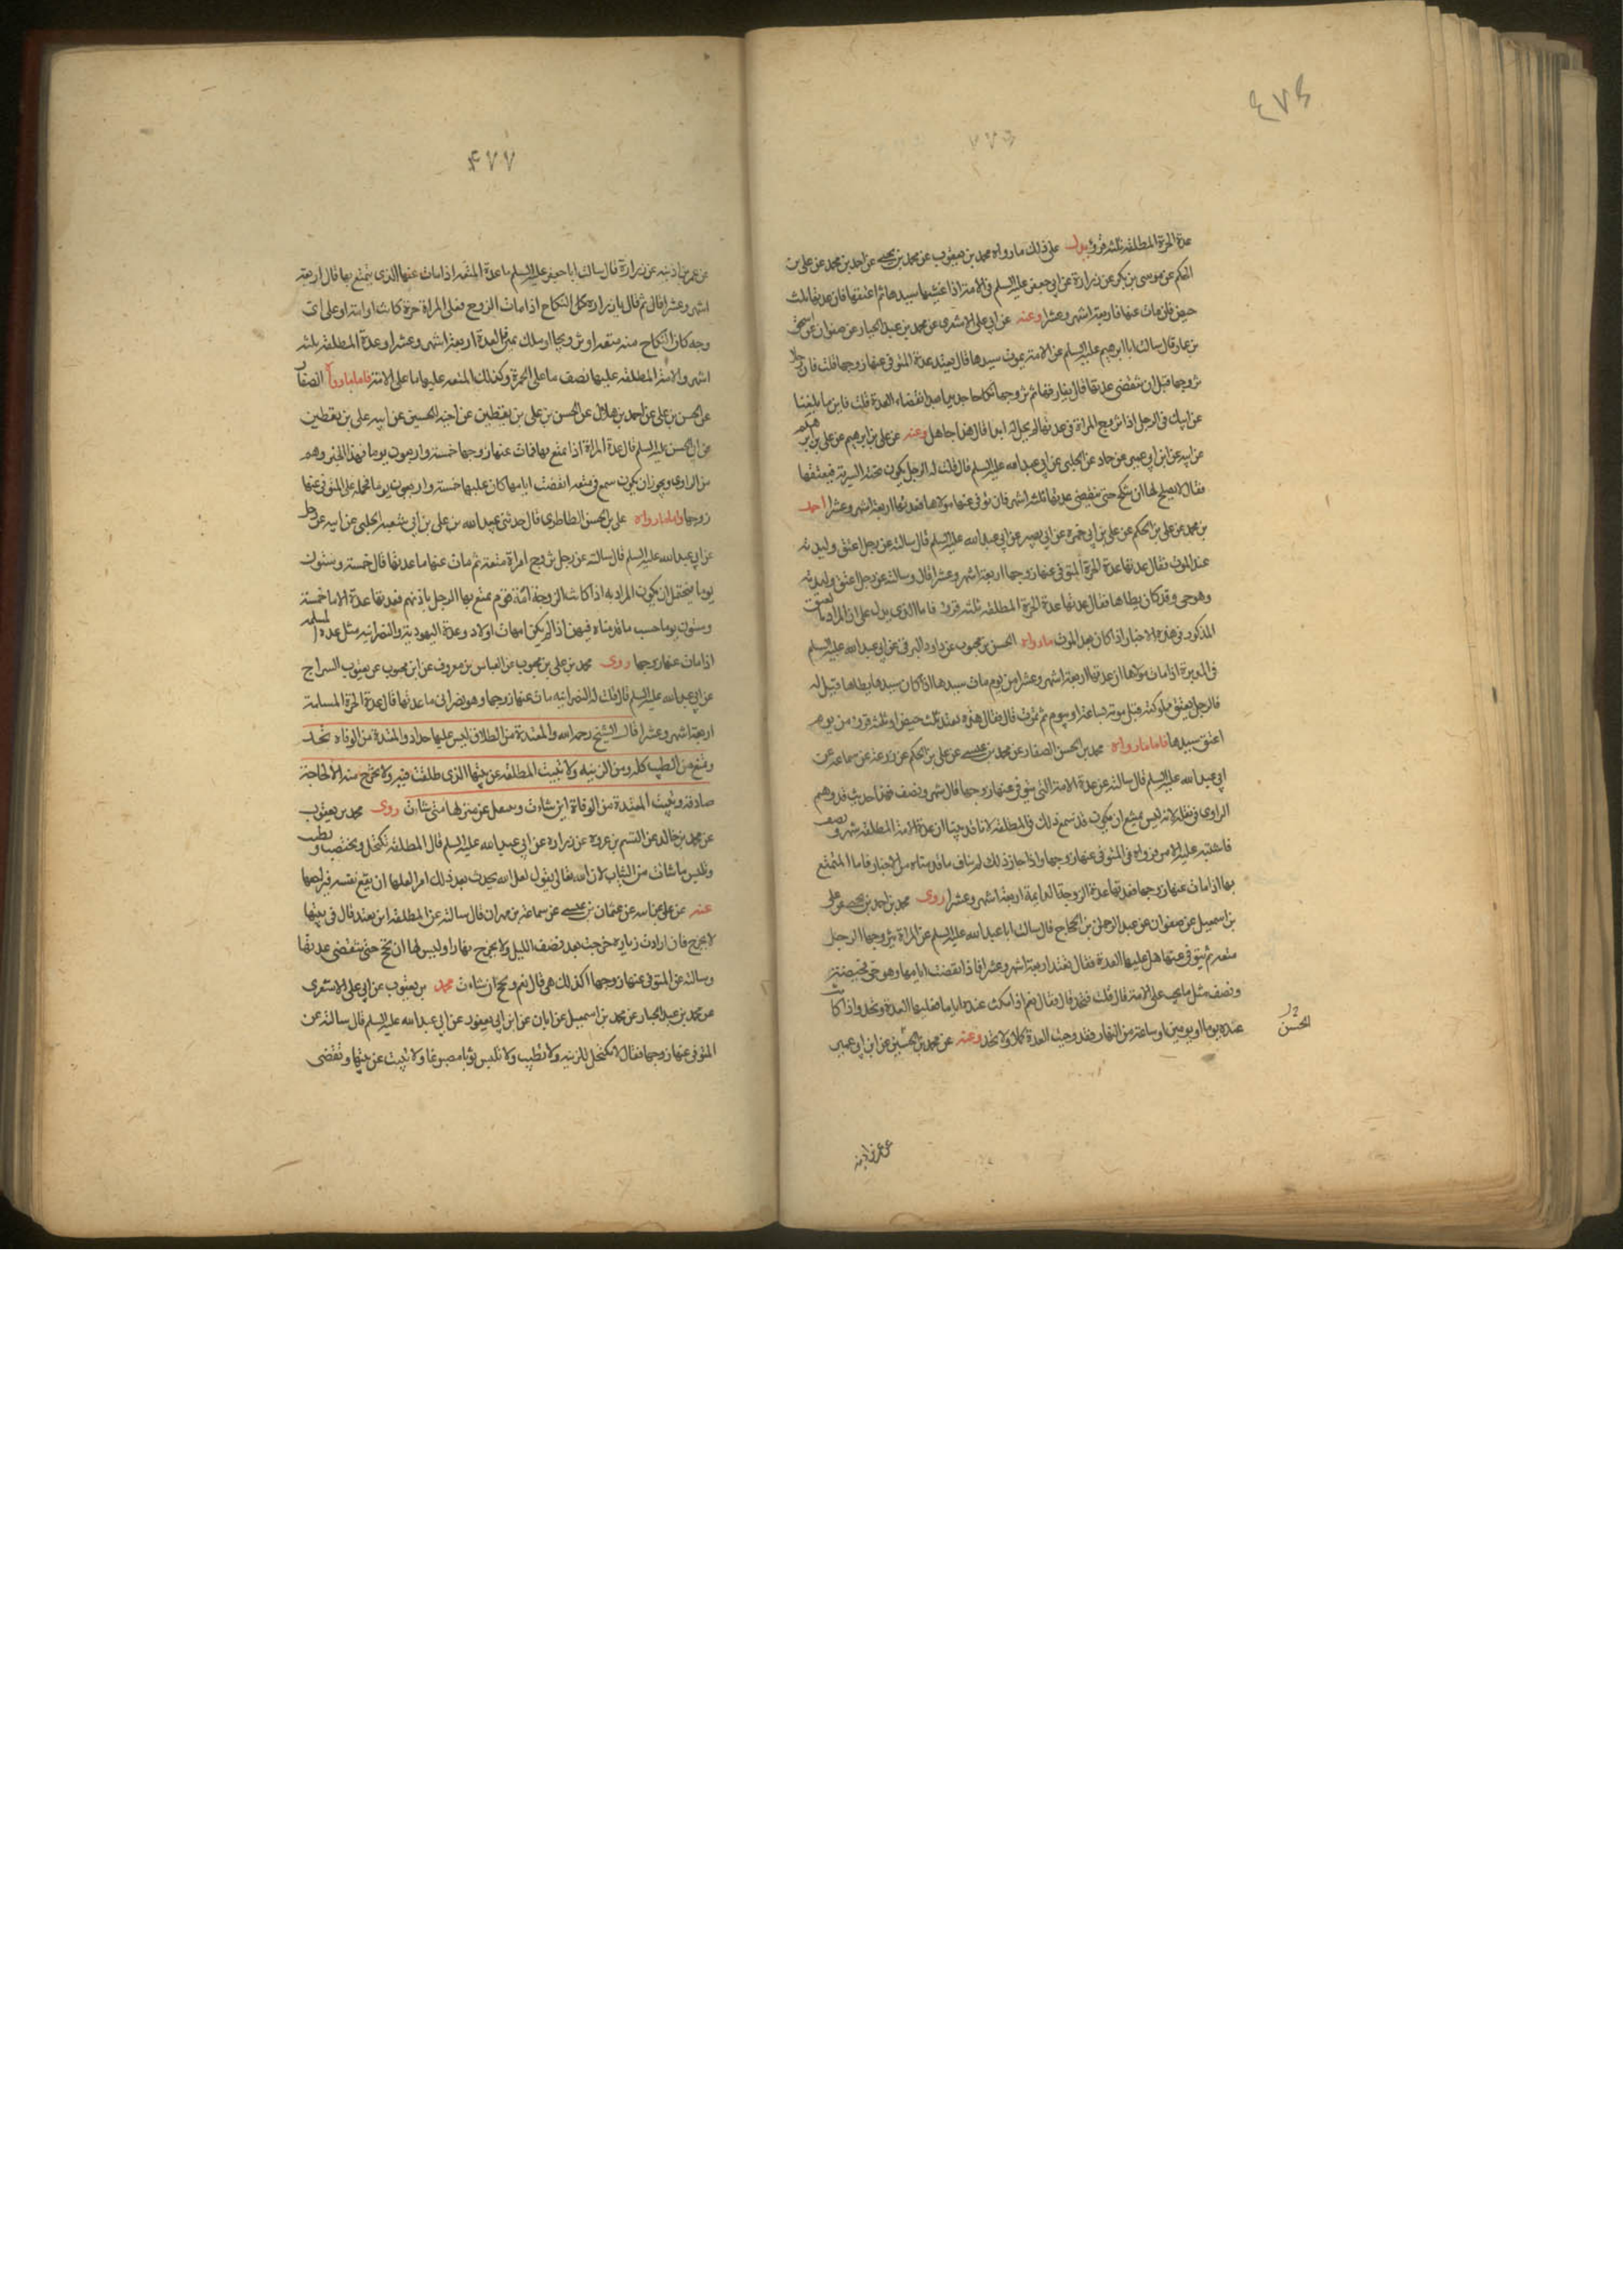 ٤٧٦
عدة الحرة المطلقة ثلثة قروء يدل على ذلك ما رواه محمد بن يعقوب عن محمد بن يحيى عن احمد بن محمد عن على بن
الحكم عن موسى بن بكر عن زرارة عن ابى جعفر عليه السلم فى الامة اذا غشيها سيدها ثم اعتقها فان عدتها ثلث
حيض فان مات عنها فاربعة اشهر وعشرا وعنه عن ابى على الاشعرى عن محمد بن عبد الجبار عن صفوان عن اسحق
بن عمار قال سالت ابا ابرهيم عليه السلم عن الامة يموت سيدها قال تعتد عدة المتوفى عنها زوجها قلت فان رجلا
تزوجها قبل ان تنقضى عدتها قال يفارقها ثم يتزوجها نكاحا جديدا بعد انقضاء العدة قلت فاين ما بلغنا
عن ابيك فى الرجل اذا تزوج المراة فى عدتها لم يحل له ابدا قال هذا جاهل وعنه عن على بن ابرهيم عن على بن ابرهيم
عن ابيه عن ابن ابى عمير عن حماد عن الحلبى عن ابى عبد الله عليه السلم قال قلت له الرجل يكون تحته السرية فيعتقها
فقال لا يصلح لها ان تنكح حتى تنقضى عدتها ثلثة اشهر فان توفى عنها مولاها فعدتها اربعة اشهر وعشرا احمد
بن محمد عن على بن الحكم عن على بن ابى حمزة عن ابى بصير عن ابى عبد الله عليه السلم قال سالته عن رجل اعتق وليدته
عند الموت فقال عدتها عدة الحرة المتوفى عنها زوجها اربعة اشهر وعشرا قال وسالته عن رجل اعتق وليدته
وهو حى وقد كان يطاها فقال عدتها عدة الحرة المطلقة ثلثة قروء فاما الذى يدل على ان المراد بالعتق
المذكور فى هذه الاخبار اذا كان بعد الموت ما رواه الحسن بن محبوب عن داود الرقى عن ابى عبد الله عليه السلم
فى المدبرة اذا مات مولاها ان عدتها اربعة اشهر وعشرا من يوم مات سيدها اذا كان سيدها يطاها قيل له
فالرجل يعتق مملوكته قبل موته بساعة او بيوم ثم يموت قال فقال هذه تعتد ثلث حيض او ثلثة قروء من يوم
اعتق سيدها فاما ما رواه محمد بن الحسن الصفار عن محمد بن عيسى عن على بن الحكم عن زرعة عن سماعة عن
ابى عبد الله عليه السلم قال سالته عن عدة الامة التى يتوفى عنها زوجها قال شهر ونصف فهذا حديث قد وهم
الراوى فى نقله لانه ليس يمتنع ان يكون قد سمع ذلك فى المطلقة لانا قد بينا ان عدة الامة المطلقة شهر ونصف
فاشتبه عليه الامر فرواه فى المتوفى عنها زوجها واذا جاز ذلك لم يناف ما قدمناه من الاخبار فاما المتمتع
بها اذا مات عنها زوجها فعدتها عدة الزوجة الدايمة اربعة اشهر وعشرا روى محمد بن احمد بن يحيى عن على
بن اسمعيل عن صفوان عن عبد الرحمن بن الحجاج قال سالت ابا عبد الله عليه السلم عن المراة يتزوجها الرجل
متعة ثم يتوفى عنها هل عليها العدة فقال تعتد اربعة اشهر وعشرا فاذا انقضت ايامها وهو حى فحيضة
ونصف مثل ما يجب على الامة قال قلت فتحد قال فقال نعم اذا مكثت عنده اياما فعليها العدة وتحد واذا كانت
عنده يوما او يومين او ساعة من النهار فقد وجبت العدة كملا ولا تحد وعنه عن محمد بن الحسين عن ابن ابى عمير
الحسن
عن عمر بن اذينه
٤٧٧
عن عمر بن اذينه عن زرارة قال سالت ابا جعفر عليه السلم ما عدة المتعة اذا مات عنها الذى يتمتع بها قال اربعة
اشهر وعشرا قال ثم قال يا زرارة كل النكاح اذا مات الزوج فعلى المراة حرة كانت او امة او على اى
وجه كان النكاح منه متعة او تزويجا او ملك يمين فالعدة اربعة اشهر وعشرا وعدة المطلقة ثلثة
اشهر والامة المطلقة عليها نصف ما على الحرة وكذلك المتعة عليها ما على الامة فاما ما رواه الصفار
عن الحسن بن على عن احمد بن هلال عن الحسن بن على بن يقطين عن اخيه الحسين عن ابيه على بن يقطين
عن ابى الحسن عليه السلم قال عدة المراة اذا تمتع بها فمات عنها زوجها خمسة واربعون يوما فهذا الخبر وهم
من الراوى ويجوز ان يكون سمع فى متعة انقضت ايامها كان عليها خمسة واربعون يوما فحمله على المتوفى عنها
زوجها واما ما رواه على بن الحسن الطاطرى قال حدثنى عبد الله بن على بن ابى شعبه الحلبى عن ابيه عن رجل
عن ابى عبد الله عليه السلم قال سالته عن رجل تزوج امراة متعة ثم مات عنها ما عدتها قال خمسة وستون
يوما فيحتمل ان يكون المراد به اذا كانت الزوجة امة قوم تمتع بها الرجل باذنهم فعدتها عدة الاما خمسة
وستون يوما حسب ما قدمناه فيهن اذا لم يكن امهات اولاد وعدة اليهودية والنصرانيه مثل عدة المسلمه
اذا مات عنها زوجها روى محمد بن على بن محبوب عن العباس بن معروف عن ابن محبوب عن يعقوب السراج
عن ابى عبد الله عليه السلم قال قلت له النصرانيه مات عنها زوجها وهو نصرانى ما عدتها قال عدة الحرة المسلمة
اربعة اشهر وعشرا قال الشيخ رحمه الله والمعتدة من الطلاق ليس عليها حداد والمعتدة من الوفاة تحد
وتمنع من الطيب كله ومن الزينه ولا تبيت المطلقة عن بيتها الذى طلقت فيه ولا تخرج منه الا لحاجة
صادقة وتبيت المعتدة من الوفاة اين شاءت وتنتقل عن منزلها متى شاءت روى محمد بن يعقوب
عن محمد بن خالد عن القسم بن عروة عن زراره عن ابى عبد الله عليه السلم قال المطلقة تكتحل وتختضب وتطيب
وتلبس ما شاءت من الثياب لان الله تعالى يقول لعل الله يحدث بعد ذلك امرا لعلها ان تقع نفسه فيراجعها
عنه عن عثمان بن عيسى عن سماعة بن مهران قال سالته عن المطلقة اين تعتد قال فى بيتها
لا تخرج فان ارادت زيارة خرجت بعد نصف الليل ولا تخرج نهارا وليس لها ان تحج حتى تنقضى عدتها
وسالته عن المتوفى عنها زوجها اكذلك هى قال نعم وتحج ان شاءت محمد بن يعقوب عن ابى على الاشعرى
عن محمد بن عبد الجبار عن محمد بن اسمعيل عن ابان عن ابن ابى يعفور عن ابى عبد الله عليه السلم قال سالته عن
المتوفى عنها زوجها فقال لا تكتحل للزينه ولا تطيب ولا تلبس ثوبا مصبوغا ولا تبيت عن بيتها وتقضى